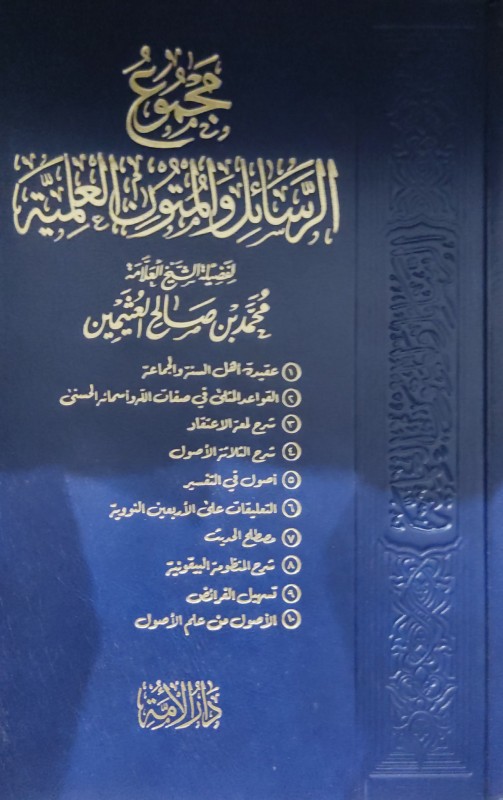 مجموع
الرسائل والمتون العلمية
لفضيلة الشيخ العلامة
محمد بن صالح العثيمين
١ عقيدة أهل السنة والجماعة
٢ القواعد المثلى في صفات الله وأسمائه الحسنى
٣ شرح لمعة الاعتقاد
٤ شرح الثلاثة الأصول
٥ أصول في التفسير
٦ التعليقات على الأربعين النووية
٧ مصطلح الحديث
٨ شرح المنظومة البيقونية
٩ تسهيل الفرائض
١٠ الأصول من علم الأصول
دار الأمة